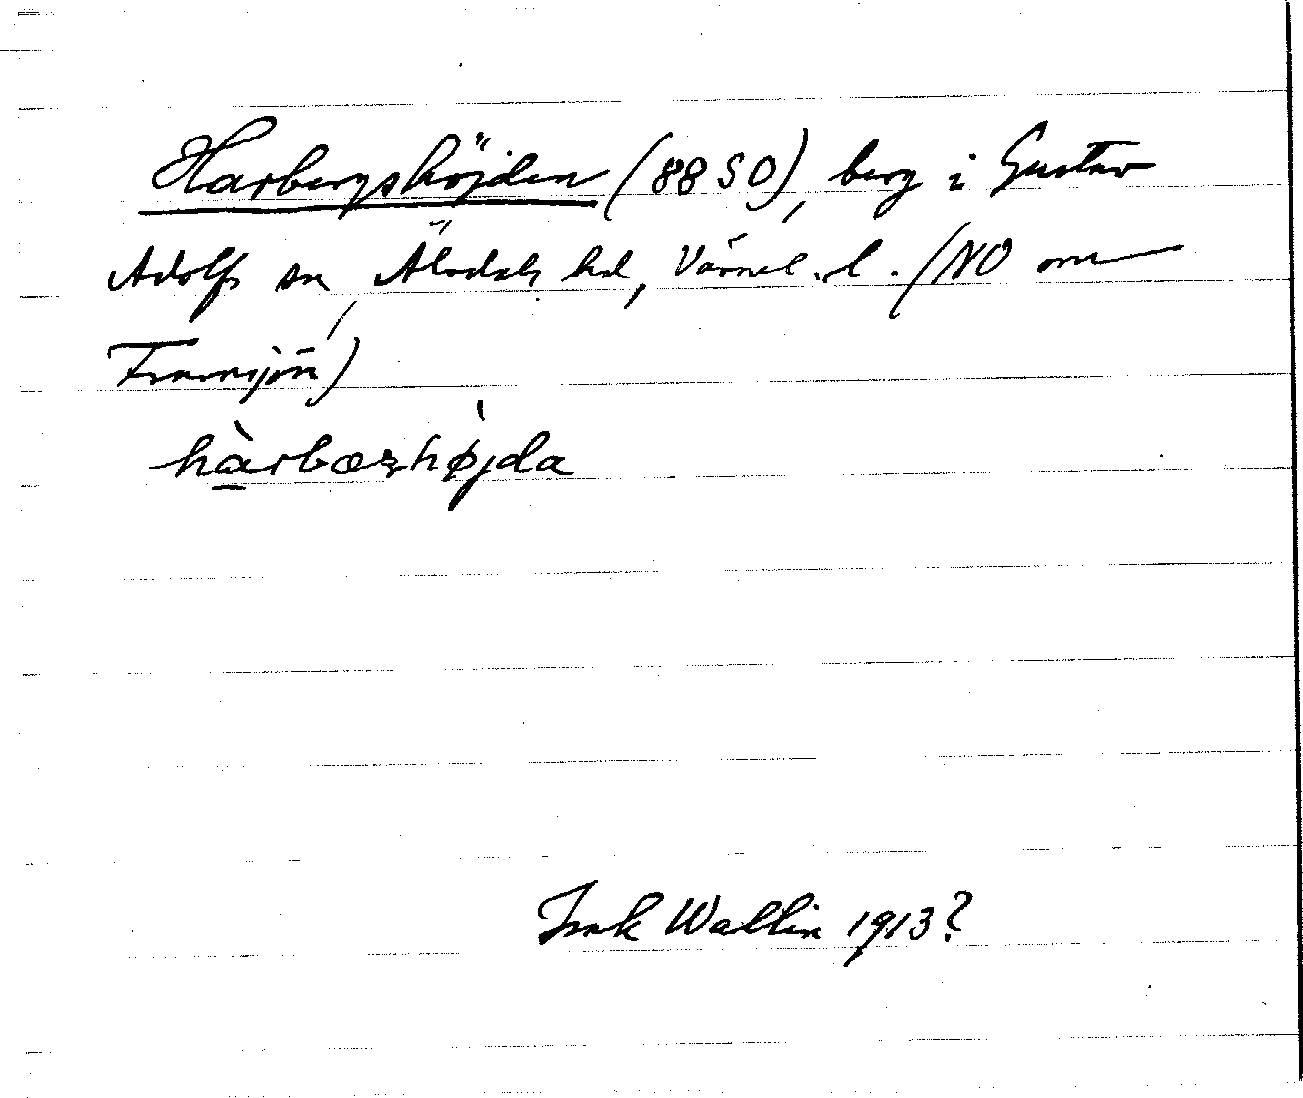 Harbergshöjden (88 SO), berg i Gustav
Adolfs sn, Älvdals hd, Värml. l. (NO om
Tramsjön)
hàrbærshø̀jda
Wallin 1913?